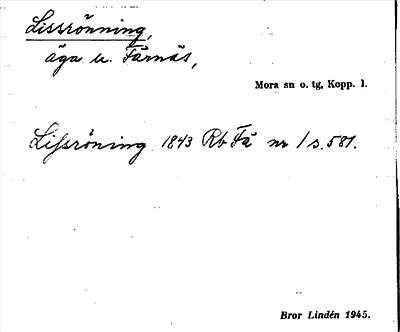 Lissrönning,
äga u. Färnäs,
Mora sn o. tg, Kopp. l.
Lissröning 1843 Rb Fä nr 1 s. 581.
Bror Lindén 1945.